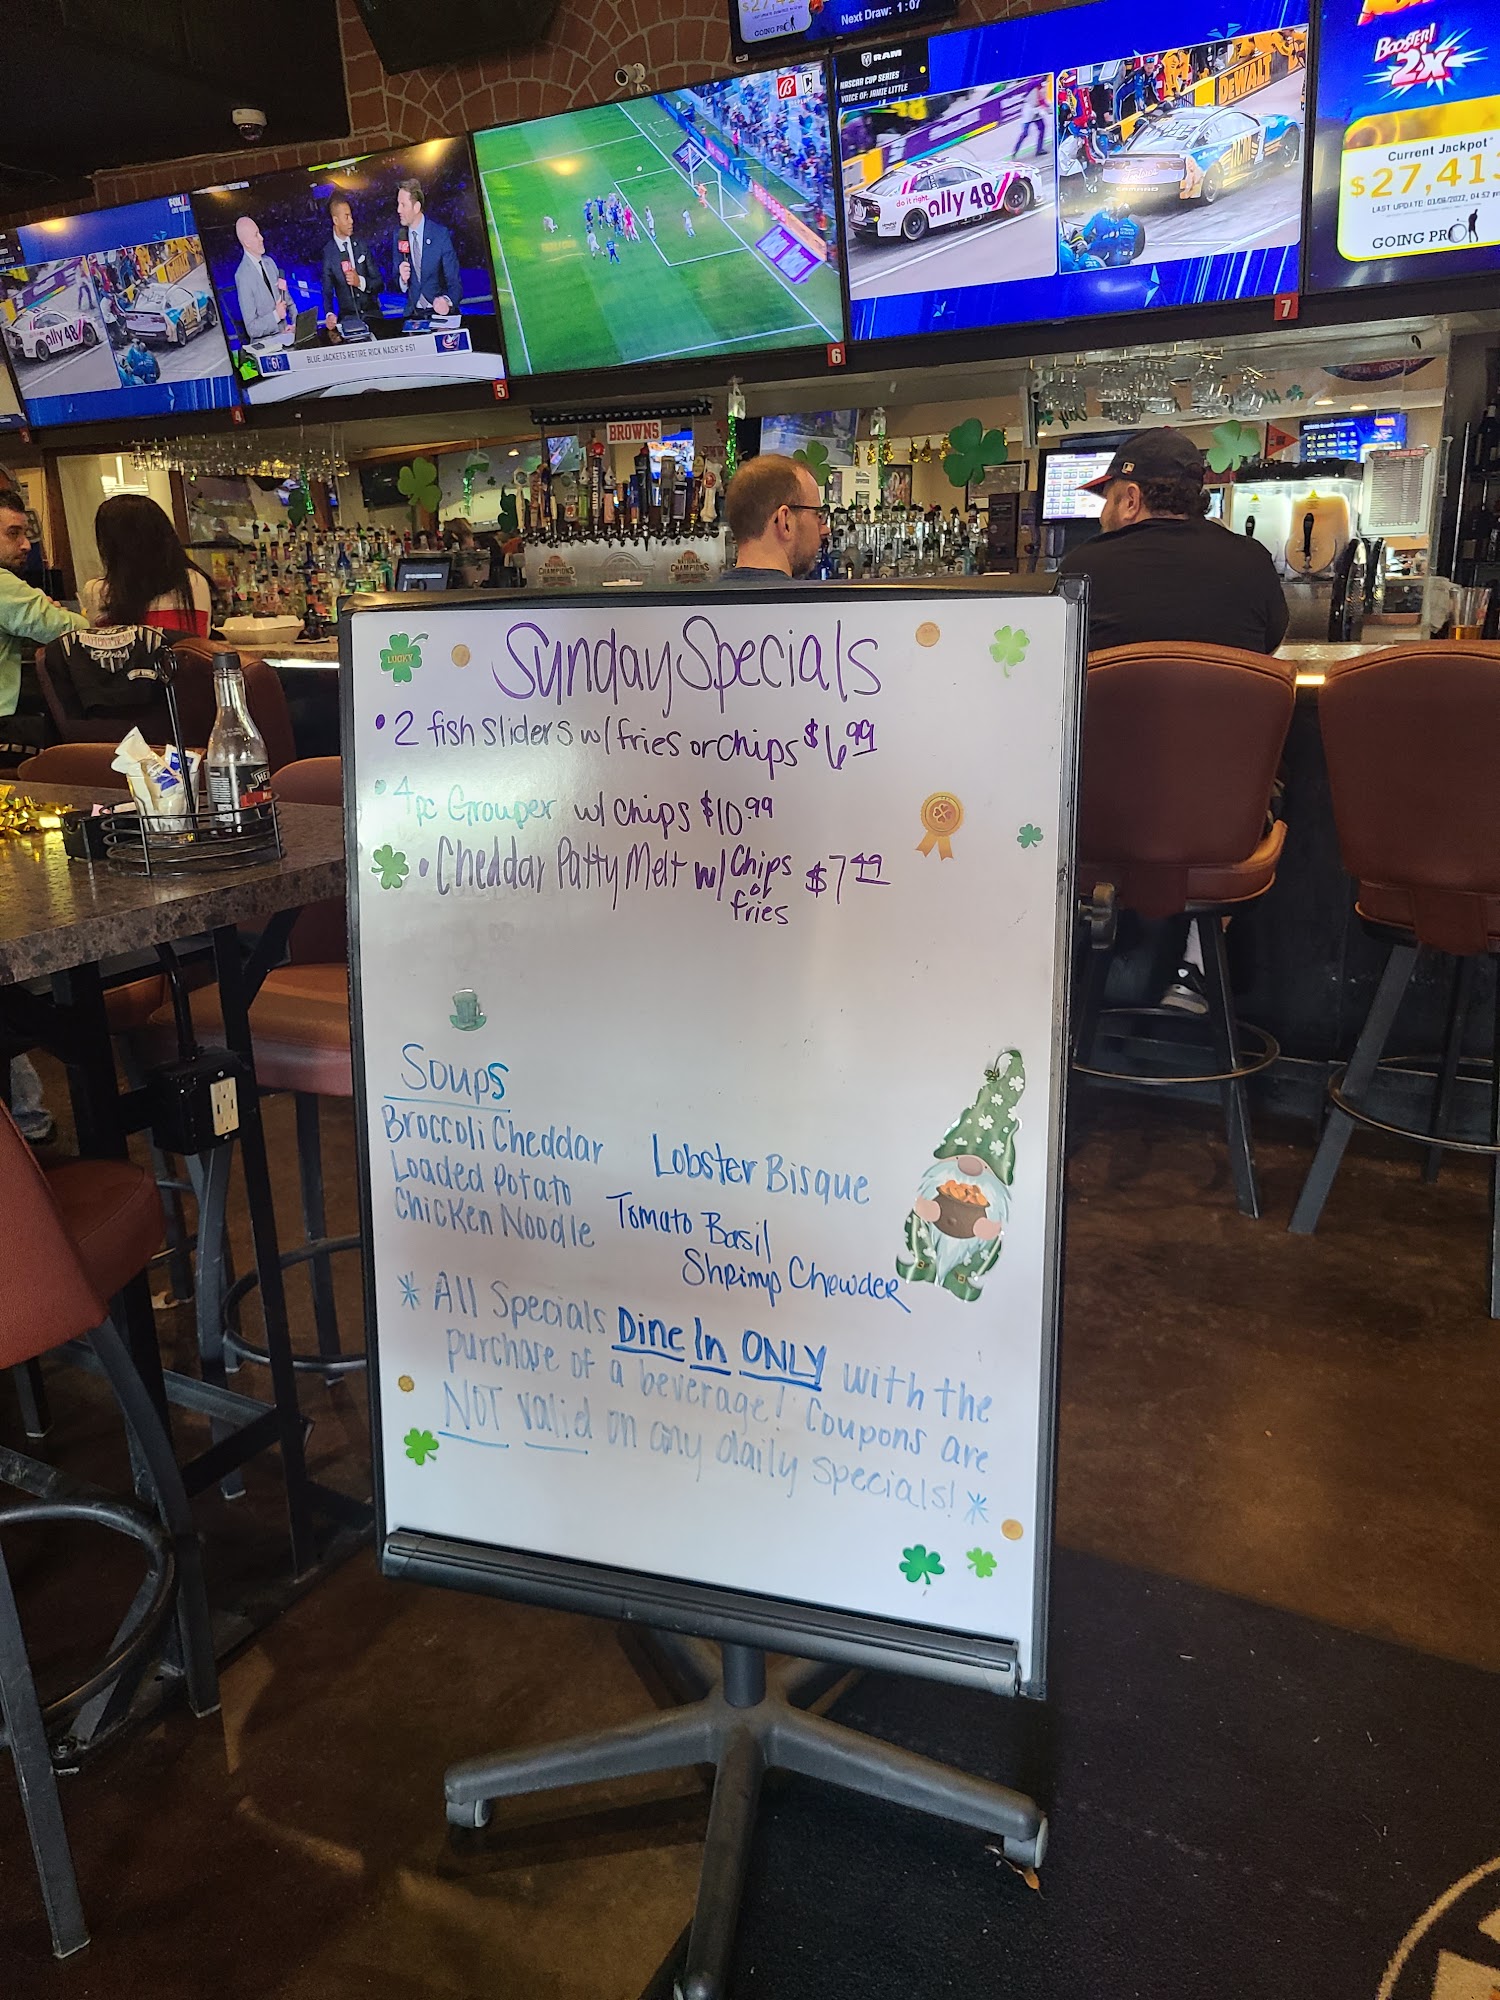 Next Draw: 1:07
GOING PRO
RAM
NASCAR CUP SERIES
VOICE OF: JAMIE LITTLE
DEWALT
do it right.
ally 48
BOOSTER!
2X
Current Jackpot
$27,413
LAST UPDATE: 03/06/2022, 04:52
GOING PRO
ally 48
61
BLUE JACKETS RETIRE RICK NASH'S #61
4
5
6
7
BROWNS
NATIONAL
CHAMPIONS
LUCKY
Sunday Specials
• 2 fish sliders w/ fries or chips $6.99
• 4pc Grouper w/ chips $10.99
• Cheddar Patty Melt w/ Chips or fries $7.49
Soups
Broccoli Cheddar
Loaded Potato
Chicken Noodle
Lobster Bisque
Tomato Basil
Shrimp Chowder
* All Specials Dine In ONLY with the
purchase of a beverage! Coupons are
NOT valid on any daily specials! *